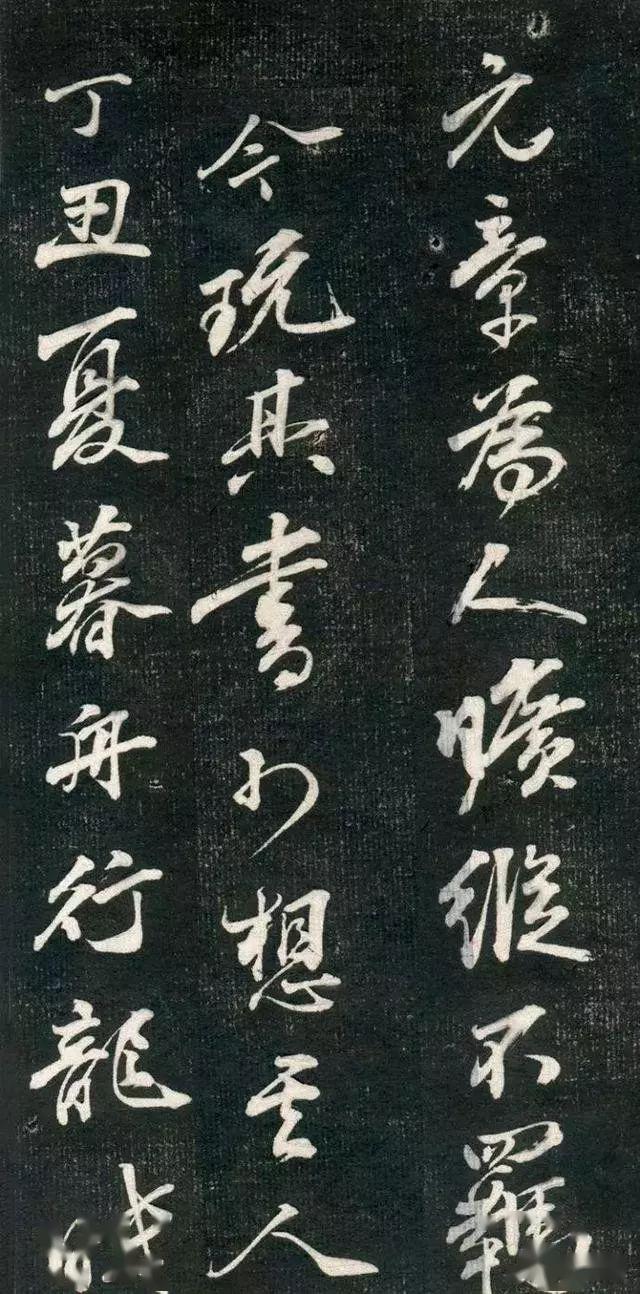 元章為人曠縱不羈
今玩其書可想其人
丁丑夏暮舟行龍